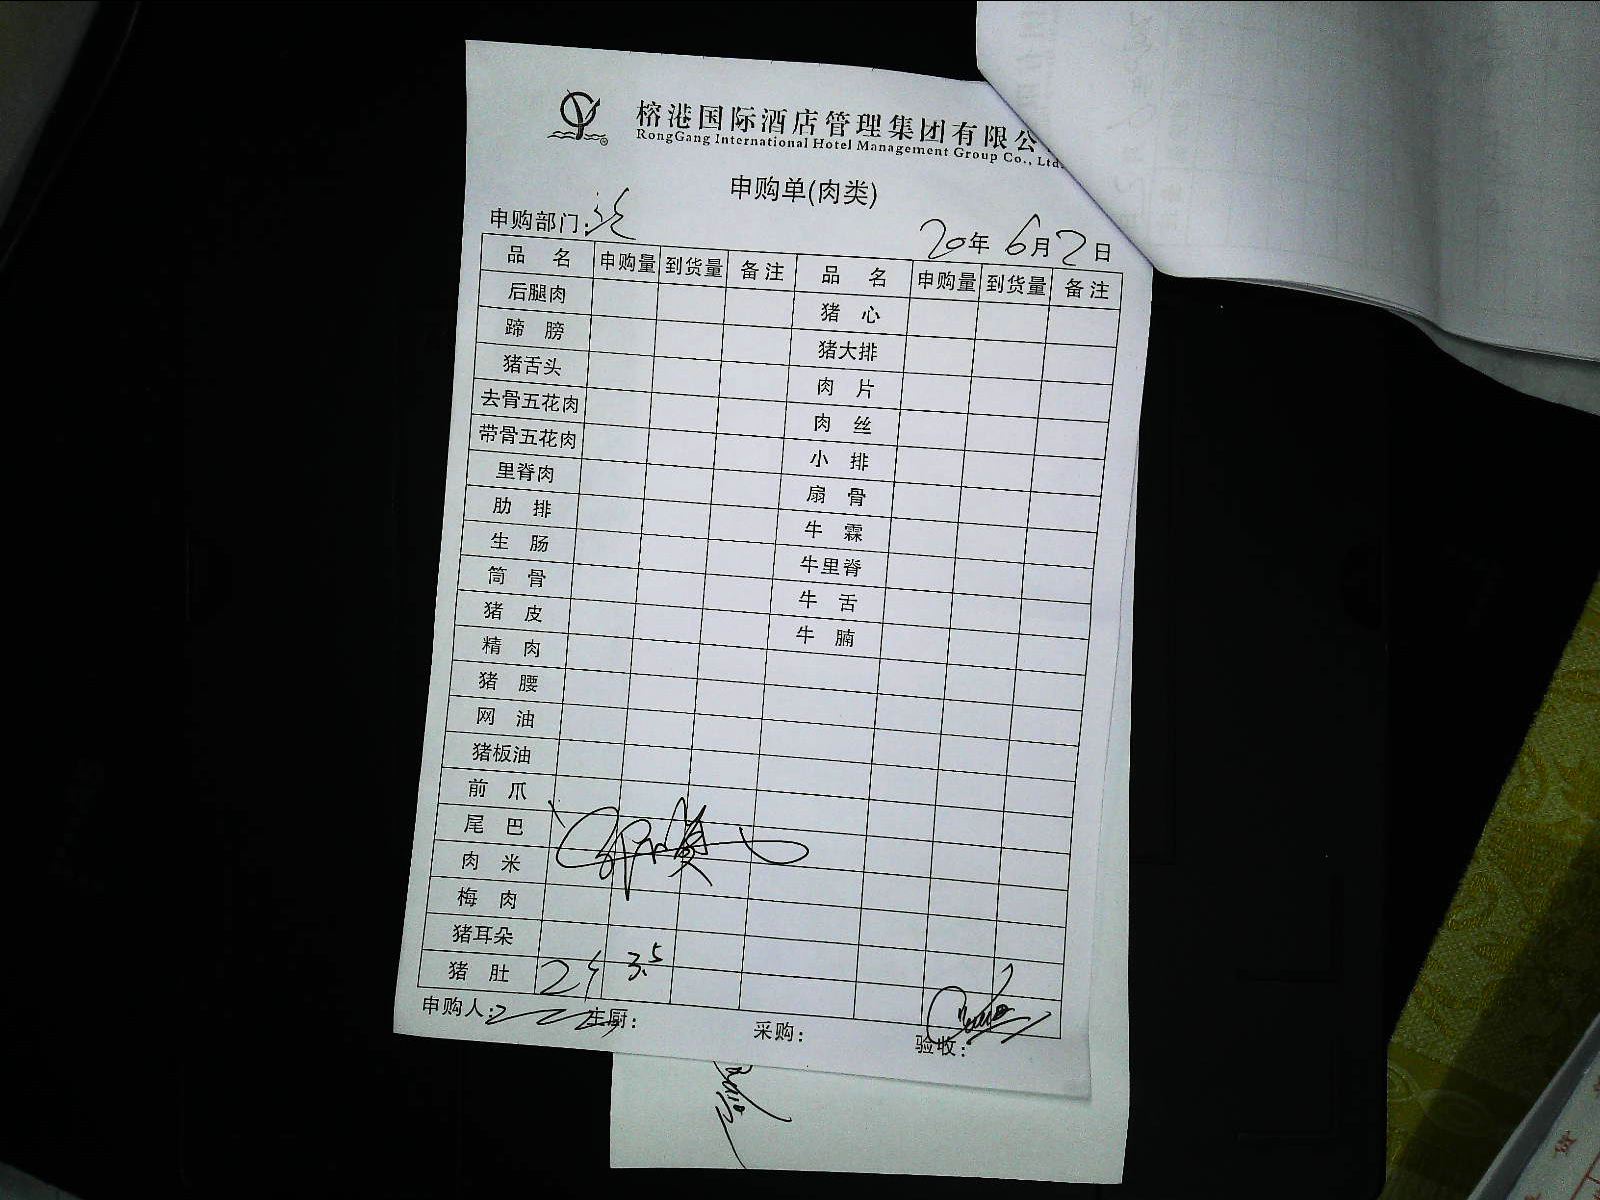 榕港国际酒店管理集团有限公
RongGang International Hotel Management Group Co., Ltd.
申购单(肉类)
申购部门:
20年 6月2日
品 名 申购量 到货量 备注 品 名 申购量 到货量 备注
后腿肉 猪 心
蹄 膀 猪大排
猪舌头 肉 片
去骨五花肉 肉 丝
带骨五花肉 小 排
里脊肉 扇 骨
肋 排 牛 霖
生 肠 牛里脊
筒 骨 牛 舌
猪 皮 牛 腩
精 肉
猪 腰
网 油
猪板油
前 爪
尾 巴
肉 米
梅 肉
猪耳朵
猪 肚 3.5
申购人: 主厨: 采购: 验收: